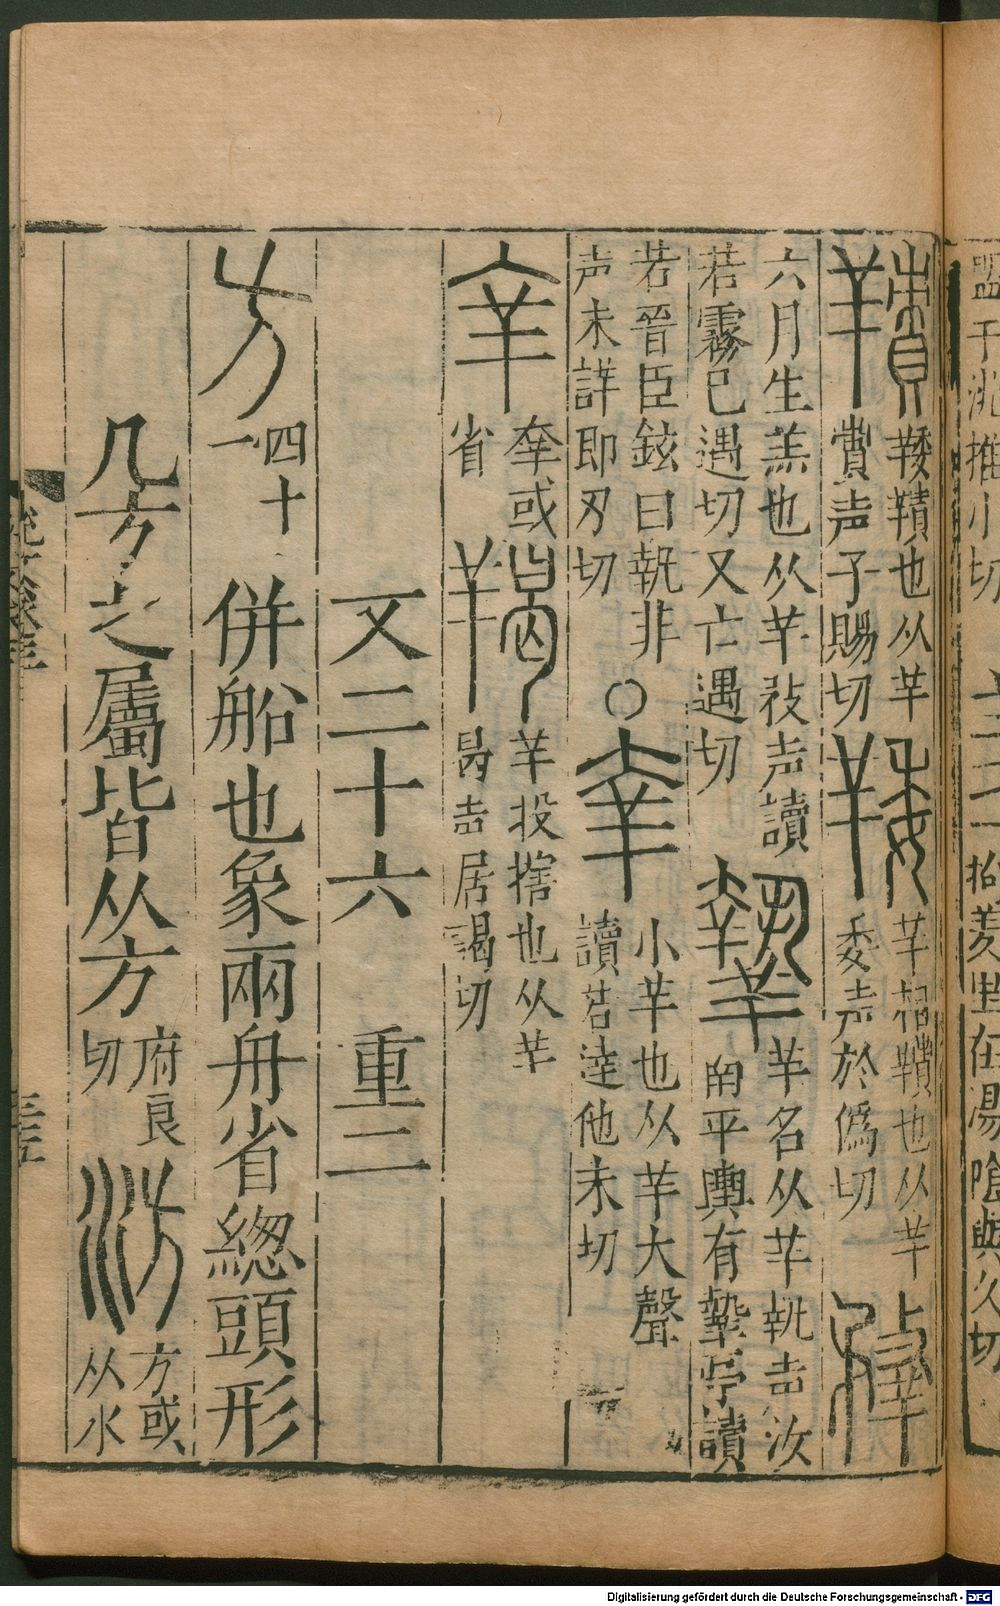 盟于洮推小切
拘羑里在湯陰與久切
䍴 𦎣䍴也从羊責声子賜切 𦎣 羊相䍴也从羊委声於僞切 䍮
六月生羔也从羊敄声讀若霧已遇切又亡遇切 𦎷 羊名从羊執声汝南平輿有𦎷亭讀
若晉臣鉉曰執非声未詳即刃切○羍 小羊也从羊大聲讀若達他未切
羍 羍或省 羯 羊羖犗也从羊曷声居謁切
文二十六 重二
方 四十一 併船也象兩舟省總頭形
凡方之屬皆从方 府良切 汸 方或从水
Digitalisierung gefördert durch die Deutsche Forschungsgemeinschaft - DFG